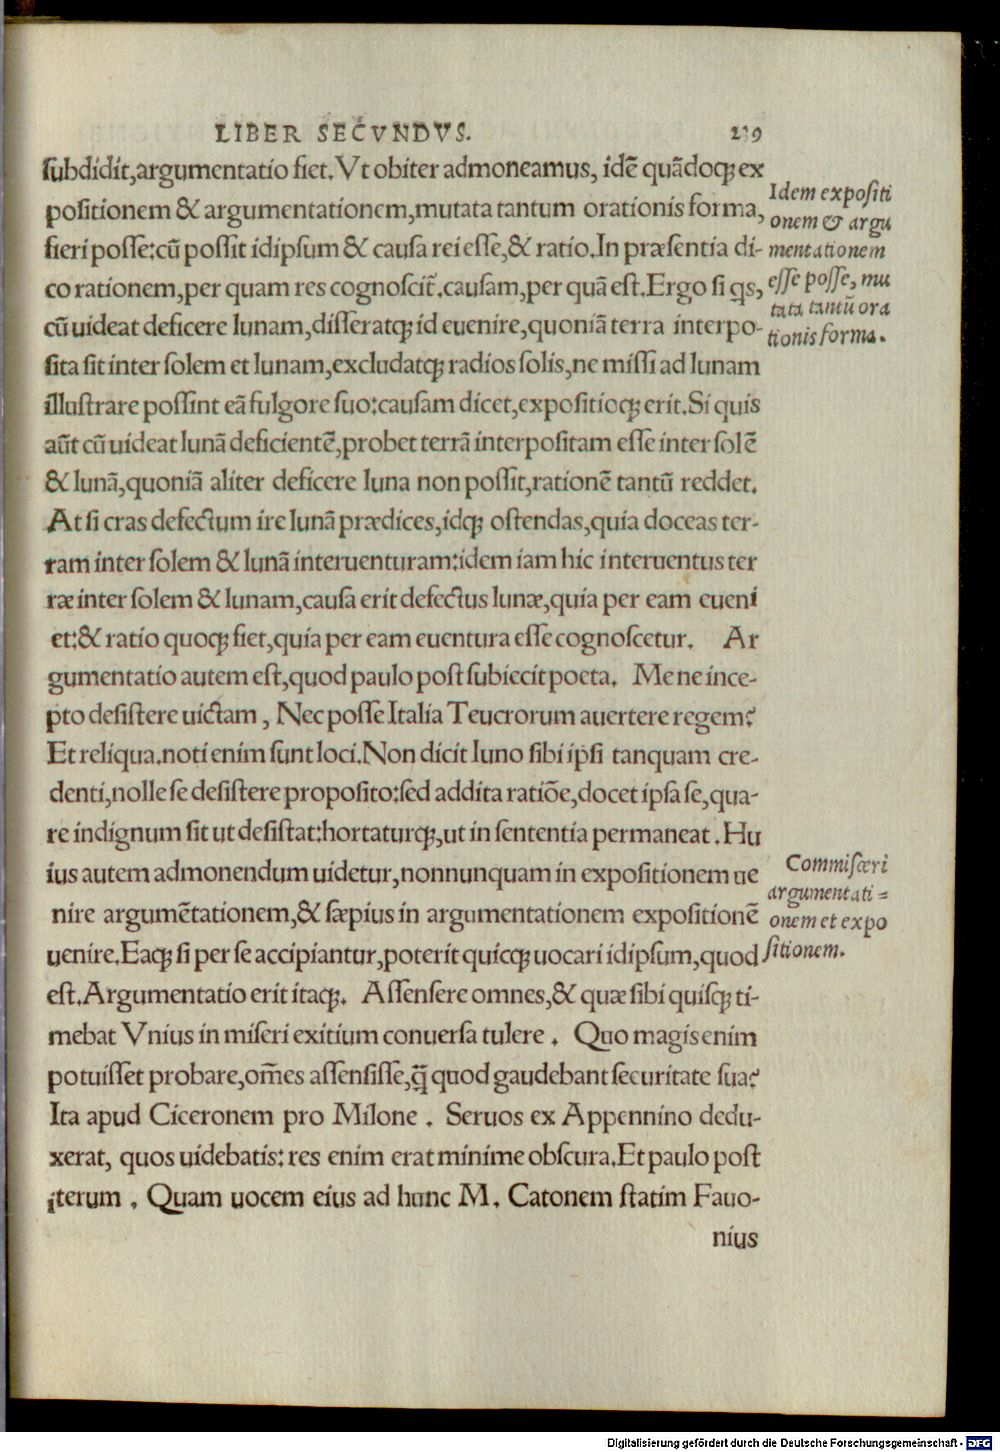 LIBER SECVNDVS. 219
subdidit,argumentatio fiet.Vt obiter admoneamus, idē quādoqꝫ ex
positionem & argumentationem,mutata tantum orationis forma,
fieri posse:cū possit idipsum & causa rei esse,& ratio.In præsentia di-
co rationem,per quam res cognoscit̄.causam,per quā est.Ergo si qs,
cū uideat deficere lunam,disseratqꝫ id euenire,quoniā terra interpo-
sita sit inter solem et lunam,excludatqꝫ radios solis,ne missi ad lunam
illustrare possint eā fulgore suo:causam dicet,expositioqꝫ erit.Si quis
aūt cū uideat lunā deficientē,probet terrā interpositam esse inter solē
& lunā,quoniā aliter deficere luna non possit,rationē tantū reddet.
At si cras defectum ire lunā prædices,idqꝫ ostendas,quia doceas ter-
ram inter solem & lunā interuenturam:idem iam hic interuentus ter
ræ inter solem & lunam,causa erit defectus lunæ,quia per eam eueni
et:& ratio quoqꝫ fiet,quia per eam euentura esse cognoscetur. Ar
gumentatio autem est,quod paulo post subiecit poeta. Mene ince-
pto desistere uictam , Nec posse Italia Teucrorum auertere regem?
Et reliqua.noti enim sunt loci.Non dicit Iuno sibi ipsi tanquam cre-
denti,nolle se desistere proposito:sed addita ratiōe,docet ipsa se,qua-
re indignum sit ut desistat:hortaturqꝫ,ut in sententia permaneat .Hu
ius autem admonendum uidetur,nonnunquam in expositionem ue
nire argumētationem,& sæpius in argumentationem expositionē
uenire.Eaqꝫ si per se accipiantur,poterit quicqꝫ uocari idipsum,quod
est.Argumentatio erit itaqꝫ. Assensere omnes,& quæ sibi quisqꝫ ti-
mebat Vnius in miseri exitium conuersa tulere . Quo magis enim
potuisset probare,oēs assensisse,q̄ quod gaudebant securitate sua?
Ita apud Ciceronem pro Milone . Seruos ex Appennino dedu-
xerat, quos uidebatis: res enim erat minime obscura.Et paulo post
iterum . Quam uocem eius ad hunc M. Catonem statim Fauo-
nius
Idem expositi
onem & argu
mentationem
esse posse, mu
tata tantū ora
tionis forma.
Commisceri
argumentati=
onem et expo
sitionem.
Digitalisierung gefördert durch die Deutsche Forschungsgemeinschaft - DFG